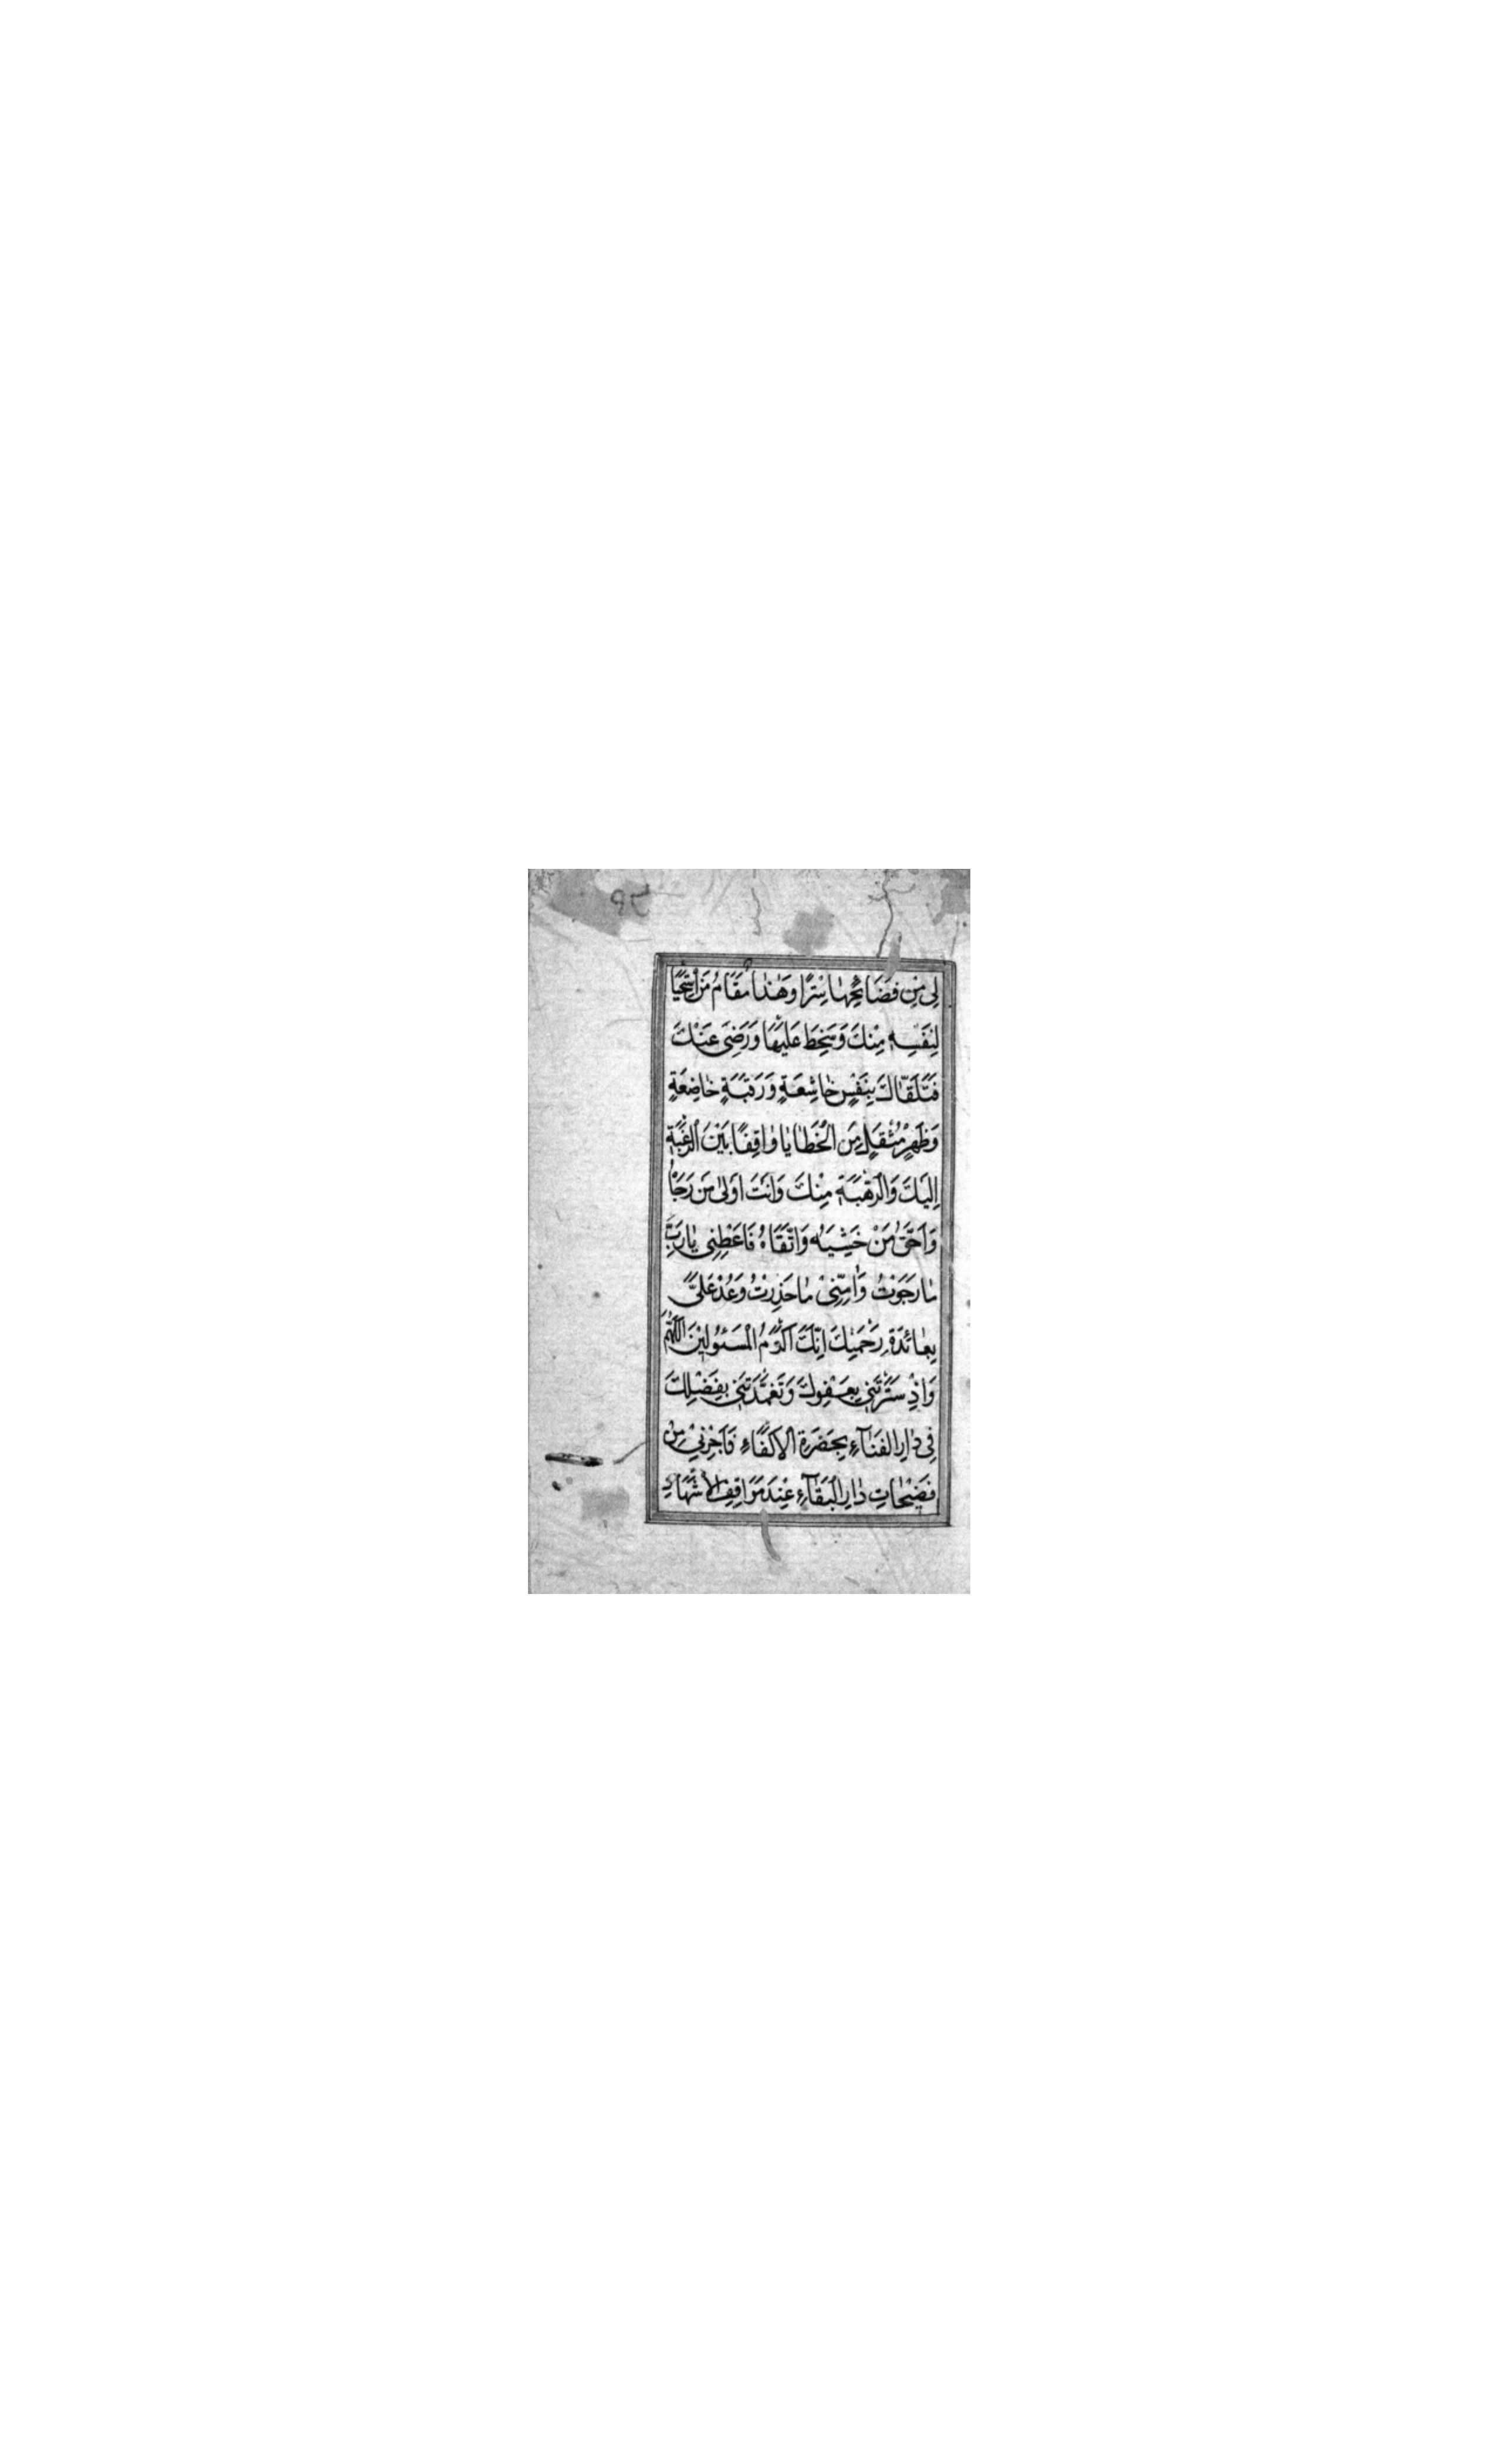 ٩٢
لِی مِنْ فَضَائِحِهَا سِتْرًا وَهٰذَا مَقَامُ مَنِ اسْتَحْیَا
لِنَفْسِهِ مِنْكَ وَسَخِطَ عَلَیْهَا وَرَضِیَ عَنْكَ
فَتَلَقَّاكَ بِنَفْسٍ خَاشِعَةٍ وَرَقَبَةٍ خَاضِعَةٍ
وَظَهْرٍ مُثْقَلٍ مِنَ الْخَطَایَا وَاقِفًا بَیْنَ الرَّغْبَةِ
اِلَیْكَ وَالرَّهْبَةِ مِنْكَ وَاَنْتَ اَوْلیٰ مَنْ رَجَاهُ
وَاَحَقُّ مَنْ خَشِیَهُ وَاتَّقَاهُ فَاَعْطِنِی یَا رَبِّ
مَا رَجَوْتُ وَاٰمِنِّیْ مَا حَذِرْتُ وَعُدْ عَلَیَّ
بِعَائِدَةِ رَحْمَتِكَ اِنَّكَ اَكْرَمُ الْمَسْئُولِیْنَ اَللّٰهُمَّ
وَاِذْ سَتَرْتَنِی بِعَفْوِكَ وَتَغَمَّدْتَنِی بِفَضْلِكَ
فِی دَارِ الْفَنَآءِ بِحَضْرَةِ الْاَكْفَاءِ فَاَجِرْنِیْ مِنْ
فَضِیْحَاتِ دَارِ الْبَقَآءِ عِنْدَ مَوَاقِفِ الْاَشْهَادِ